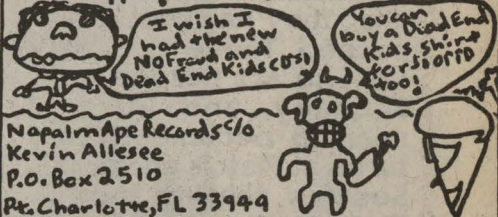 I wish I
had the new
No Fraud and
Dead End Kids CDs!
You can
buy a Dead End
Kids shirt
for $10 PPD
too!
Napalm Ape Records c/o
Kevin Allesee
P.O. Box 2510
Pt. Charlotte, FL 33949